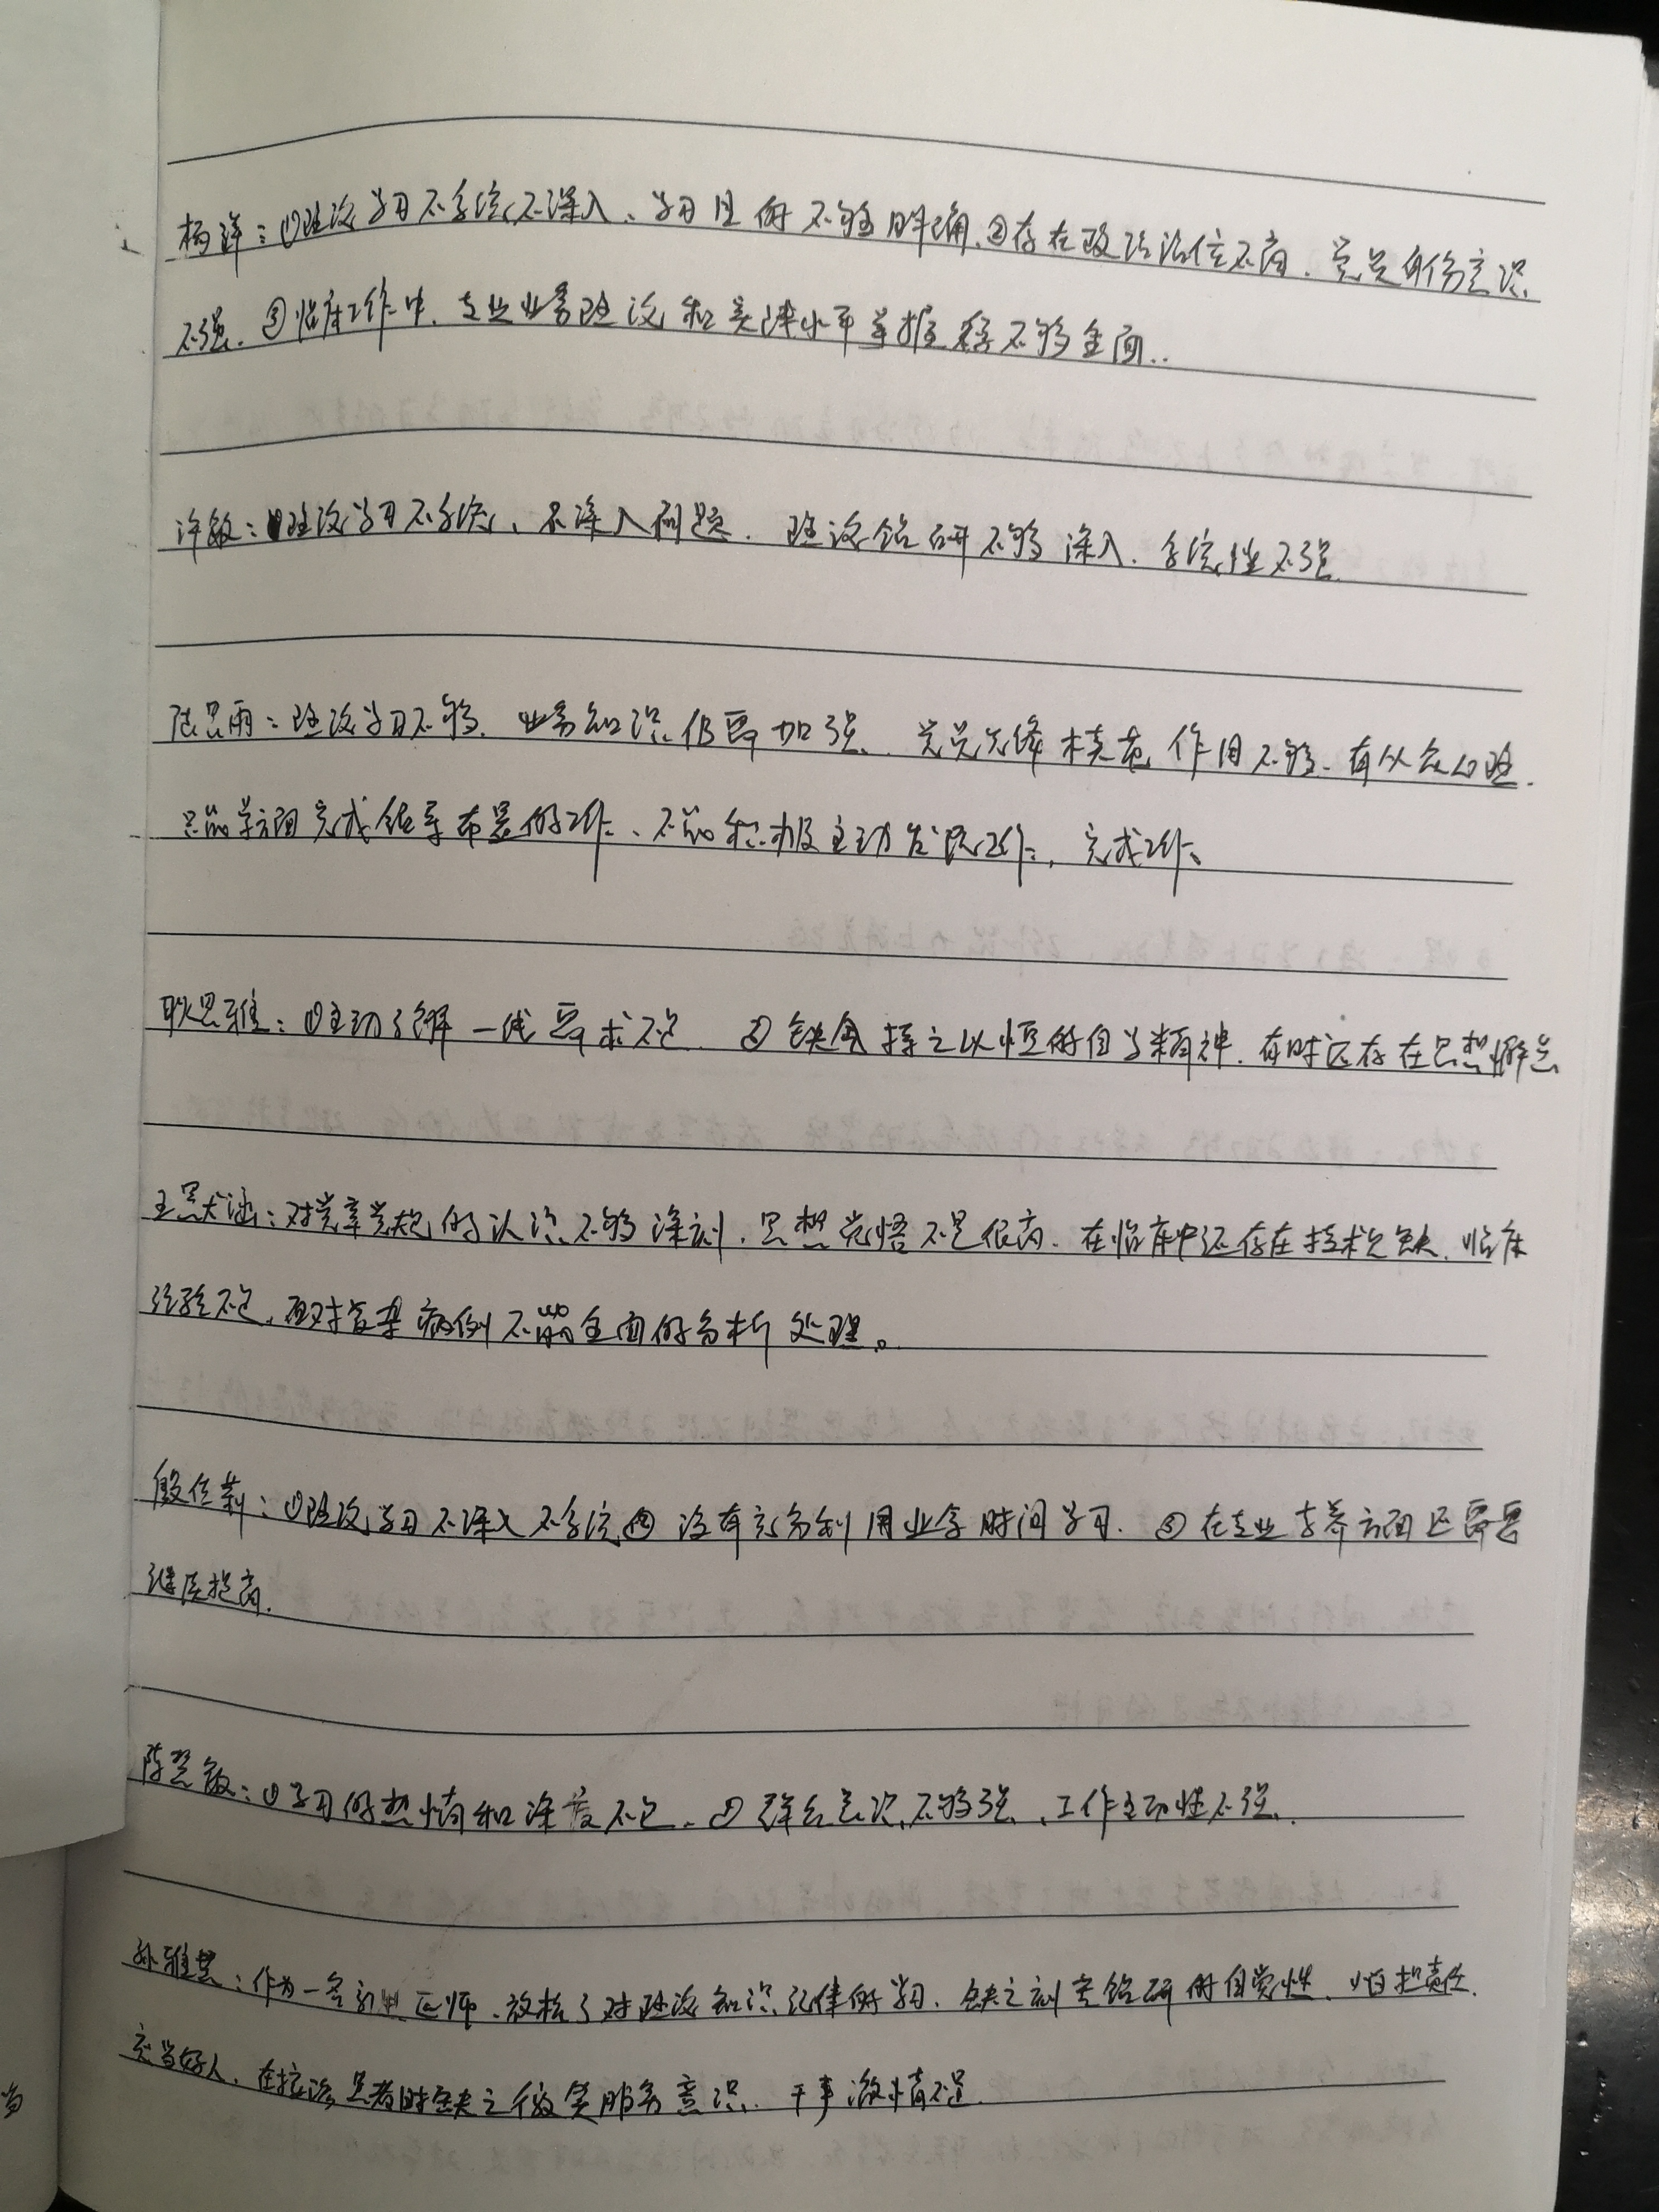 杨洋：①理论学习不系统、不深入、学习目的不够明确，②存在政治站位不高，党员身份意识
不强。③临床工作中，专业业务理论和实课水平掌握得不够全面..
许敏：理论学习不系统、不深入问题，理论钻研不够深入，系统性不强
思雨：理论学习不够，业务知识仍要加强，党员先锋模范作用不够，有从众心理，
只能单方面完成领导布置的工作、不能积极主动发现工作，完成工作。
耿思雅：①主动了解一线要求不足 ②缺乏持之以恒的自学精神，有时还存在思想懈怠
王默涵：对党章党规的认识不够深刻，思想觉悟不是很高，在临床中还存在技术欠缺，临床
经验不足，面对复杂病例不能全面的分析处理。
殷佳莉：①理论学习不深入不系统，② 没有充分利用业余时间学习，③ 在专业素养方面还需要
继续提高。
陈慧敏：①学习的热情和深度不足，② 群众意识不够强，工作主动性不强，
孙雅慧：作为一名主治医师、放松了对理论知识纪律的学习，缺乏刻苦钻研的自觉性，怕担责任，
充当好人，在接诊患者时缺乏微笑服务意识，干事激情不足